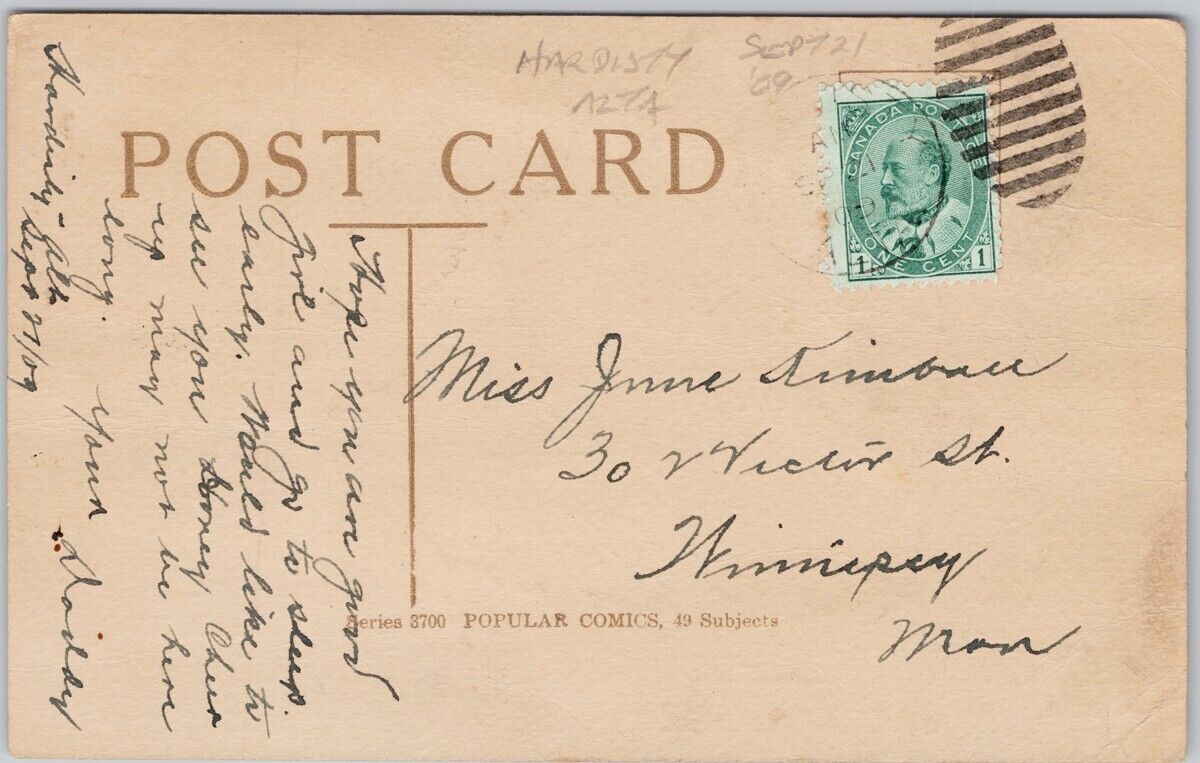 HARDISTY SEPT 21
'09
POST CARD
CANADA POSTAGE
1 ONE CENT 1
Hardisty - Alta
Sept 21/09
Hope you are good
girl and go to sleep
early. Would like to
see you Honey Cheer
up may not be here
long.
Your Daddy
Miss June Kimball
30 Victor St.
Winnipeg
Man
Series 3700 POPULAR COMICS, 49 Subjects